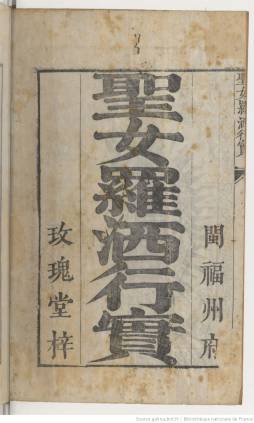 閩福州府
聖女羅洒行實
玫瑰堂梓
聖女羅洒行實
Source gallica.bnf.fr / Bibliothèque nationale de France